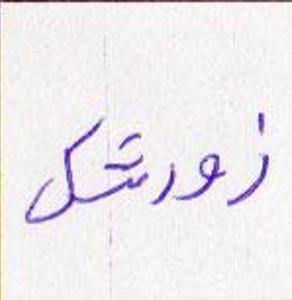 زورشک